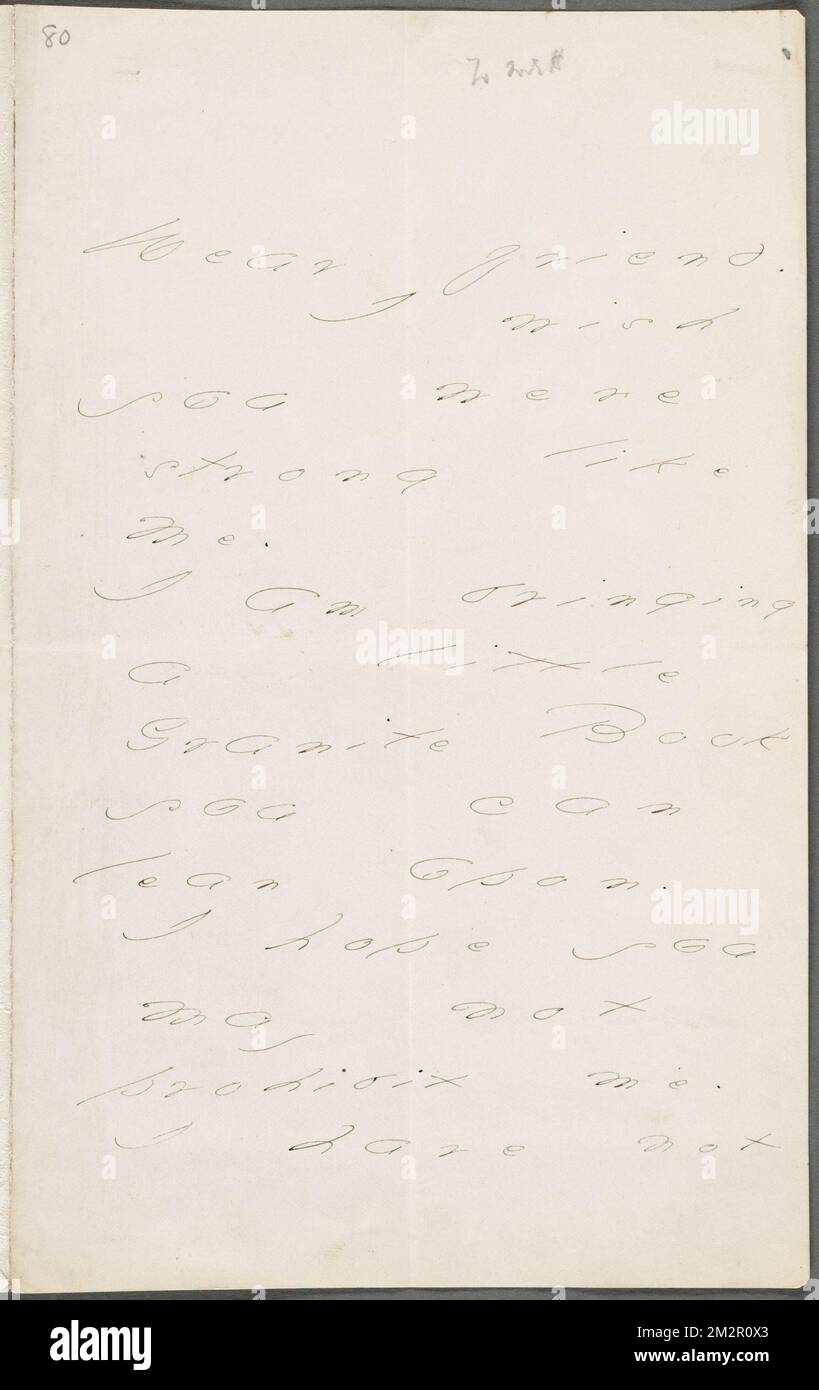 80
Dear friend.
I wish
you were
strong like
me.
I am bringing
a little
Granite Book
you can
lean upon.
I hope you
may not
prohibit me.
I have not
alamy
alamy
alamy
Image ID: 2M2R0X3
www.alamy.com